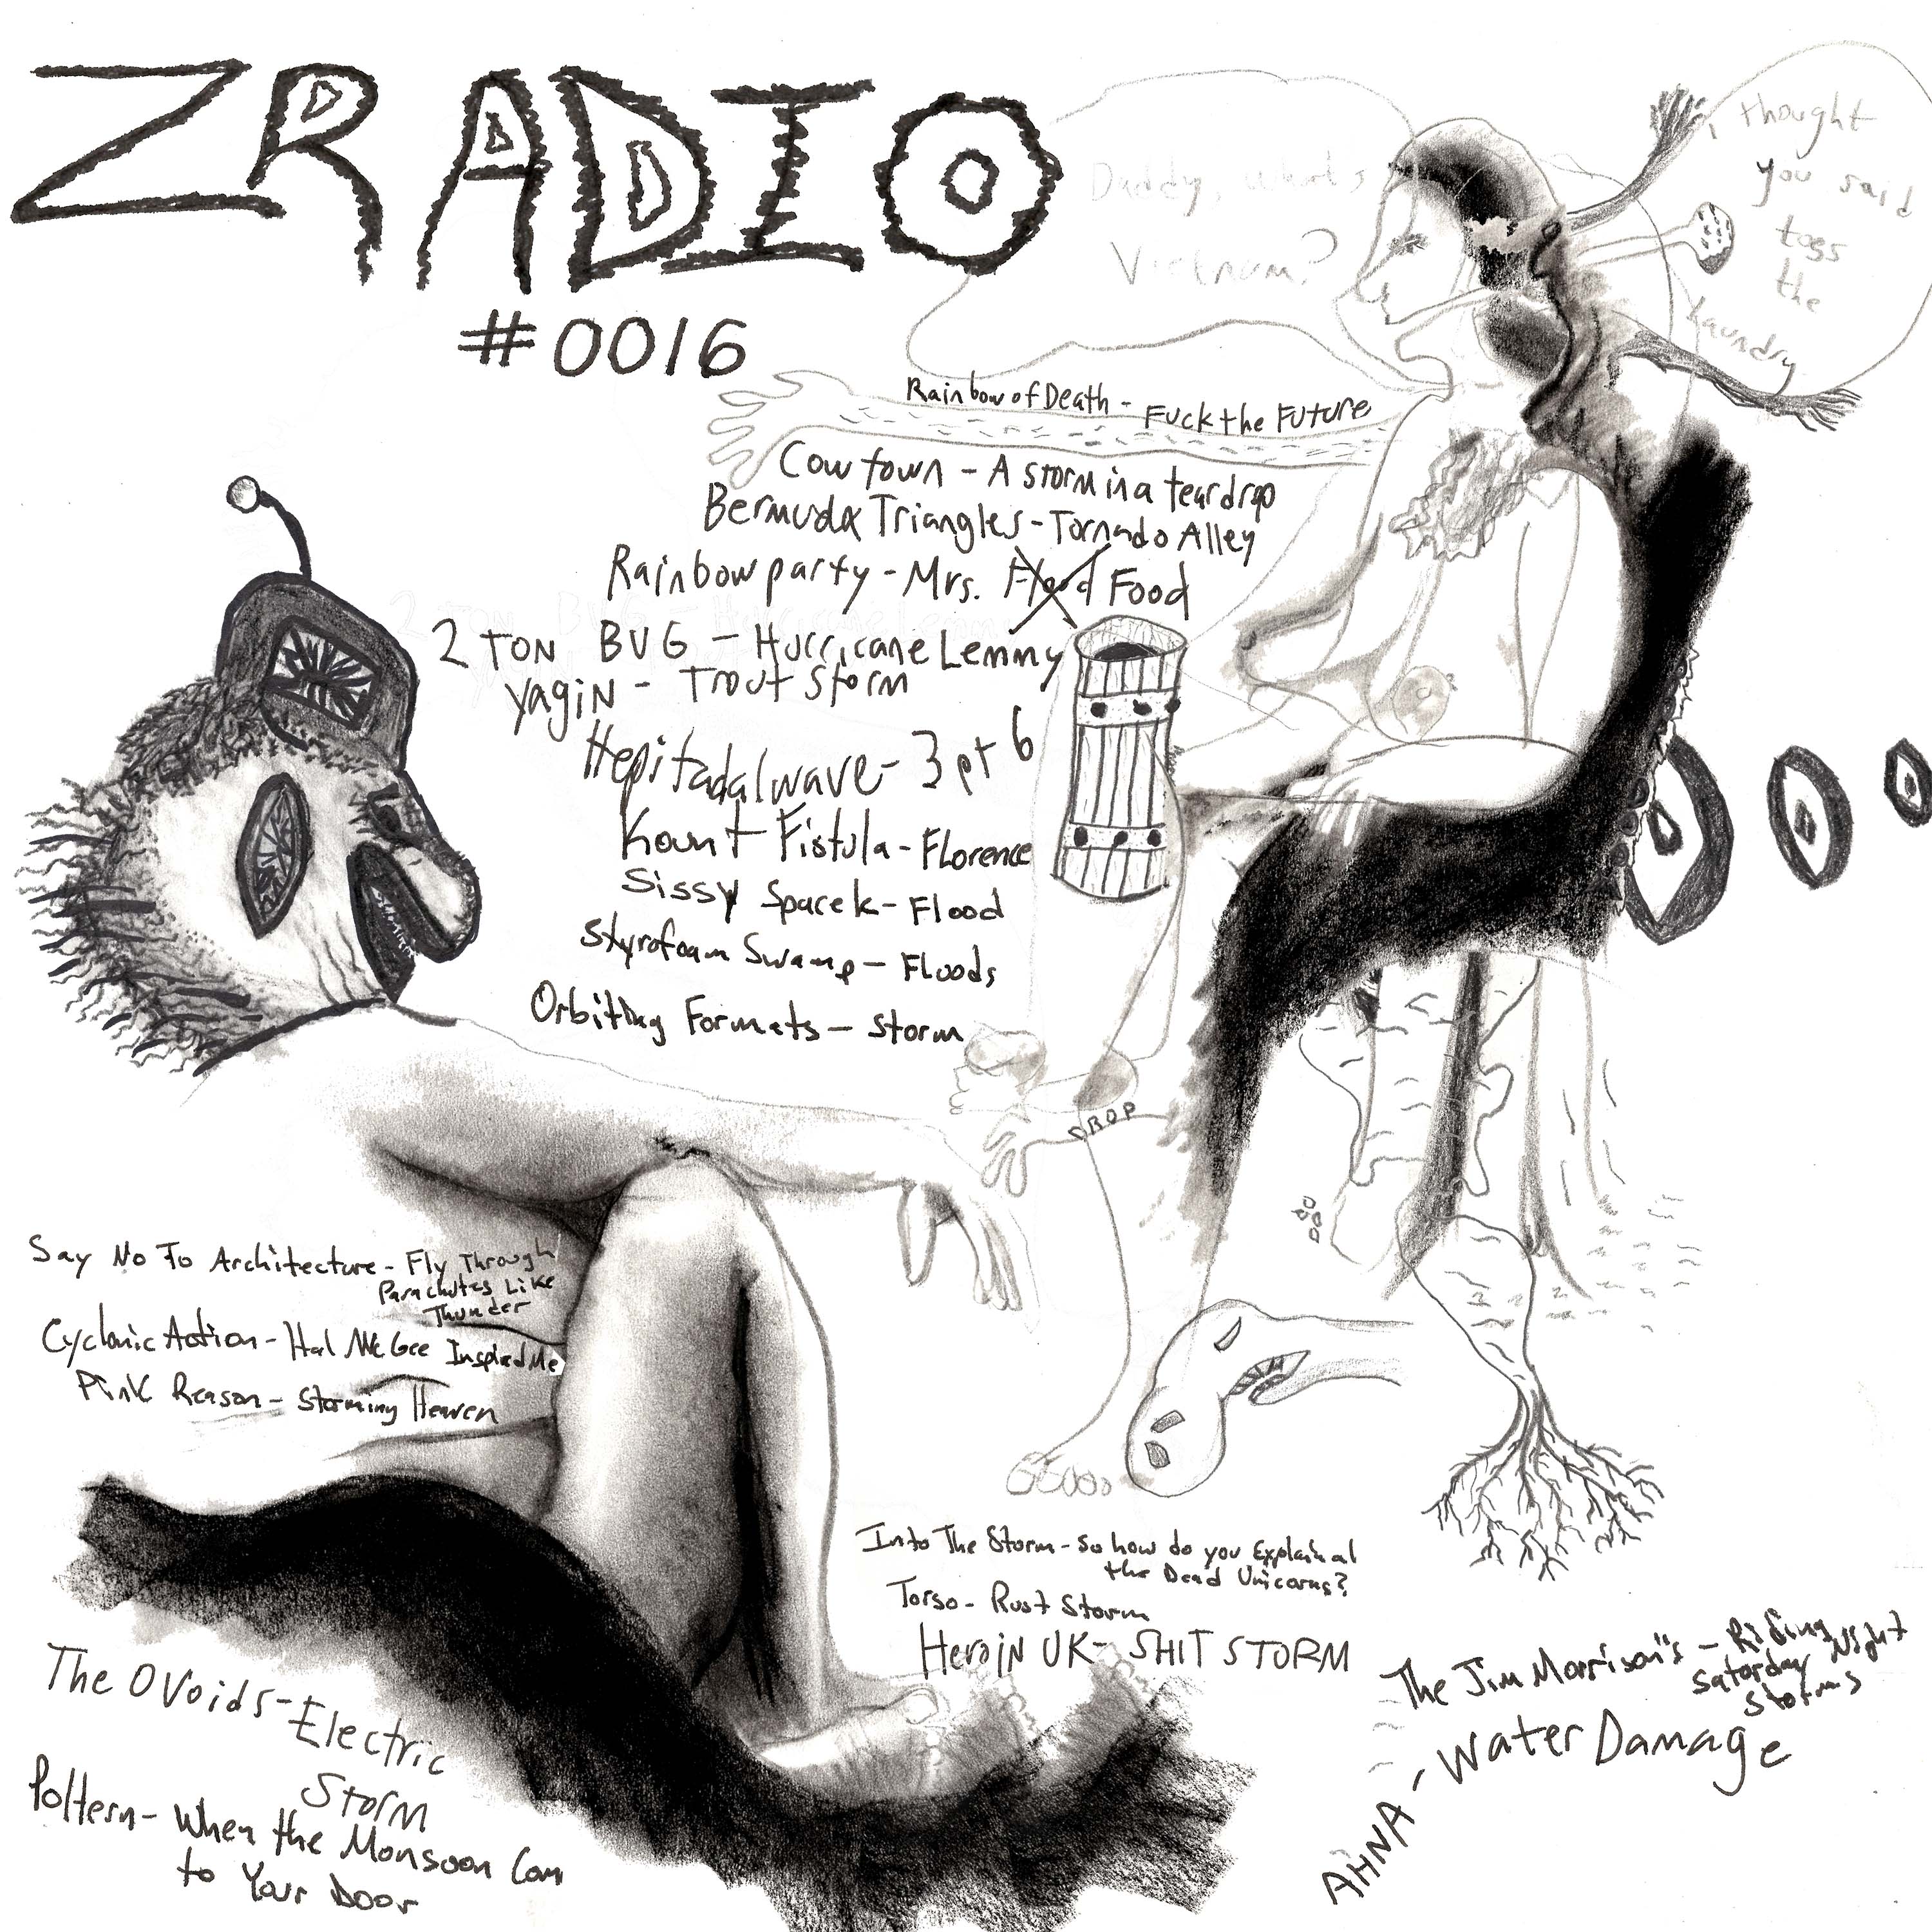 ZRADIO
#0016
Daddy, what's
Vietnam?
I thought
you said
toss
the
laundry
Rainbow of Death - Fuck the Future
Cowtown - A storm in a teardrop
Bermuda Triangles - Tornado Alley
Rainbowparty - Mrs. Flood Food
2 TON BUG - Hurricane Lemmy
yagiN - Trout Storm
Hepitadalwave - 3 pt 6
Kount Fistula - Florence
Sissy Spacek - Flood
Styrofoam Swamp - Floods
Orbiting Formats - Storm
CROP
Say No To Architecture - Fly Through
Parachutes Like
Thunder
Cyclonic Action - Hal McGee Inspired Me
Pink Reason - Storming Heaven
Into The Storm - So how do you Explain al
the Dead Unicorns?
Torso - Rust Storm
Heroin UK - SHIT STORM
The Ovoids - Electric
Storm
Poltern - When the Monsoon Com
to Your Door
The Jim Morrison's - Riding
Saturday Night
Storms
AHNA - Water Damage